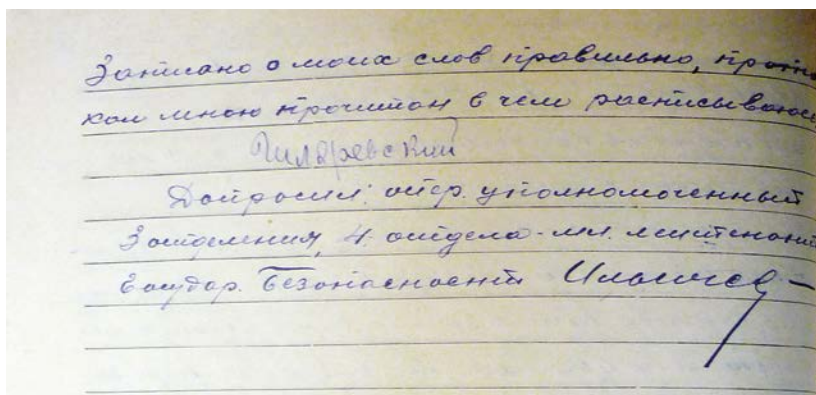 Записано с моих слов правильно, прото
кол мною прочитан в чем расписываюсь
Гиляревский
Допросил: опер. уполномоченный
3 отделения, 4. отдела – мл. лейтенант
Государ. Безопасности Ильичев